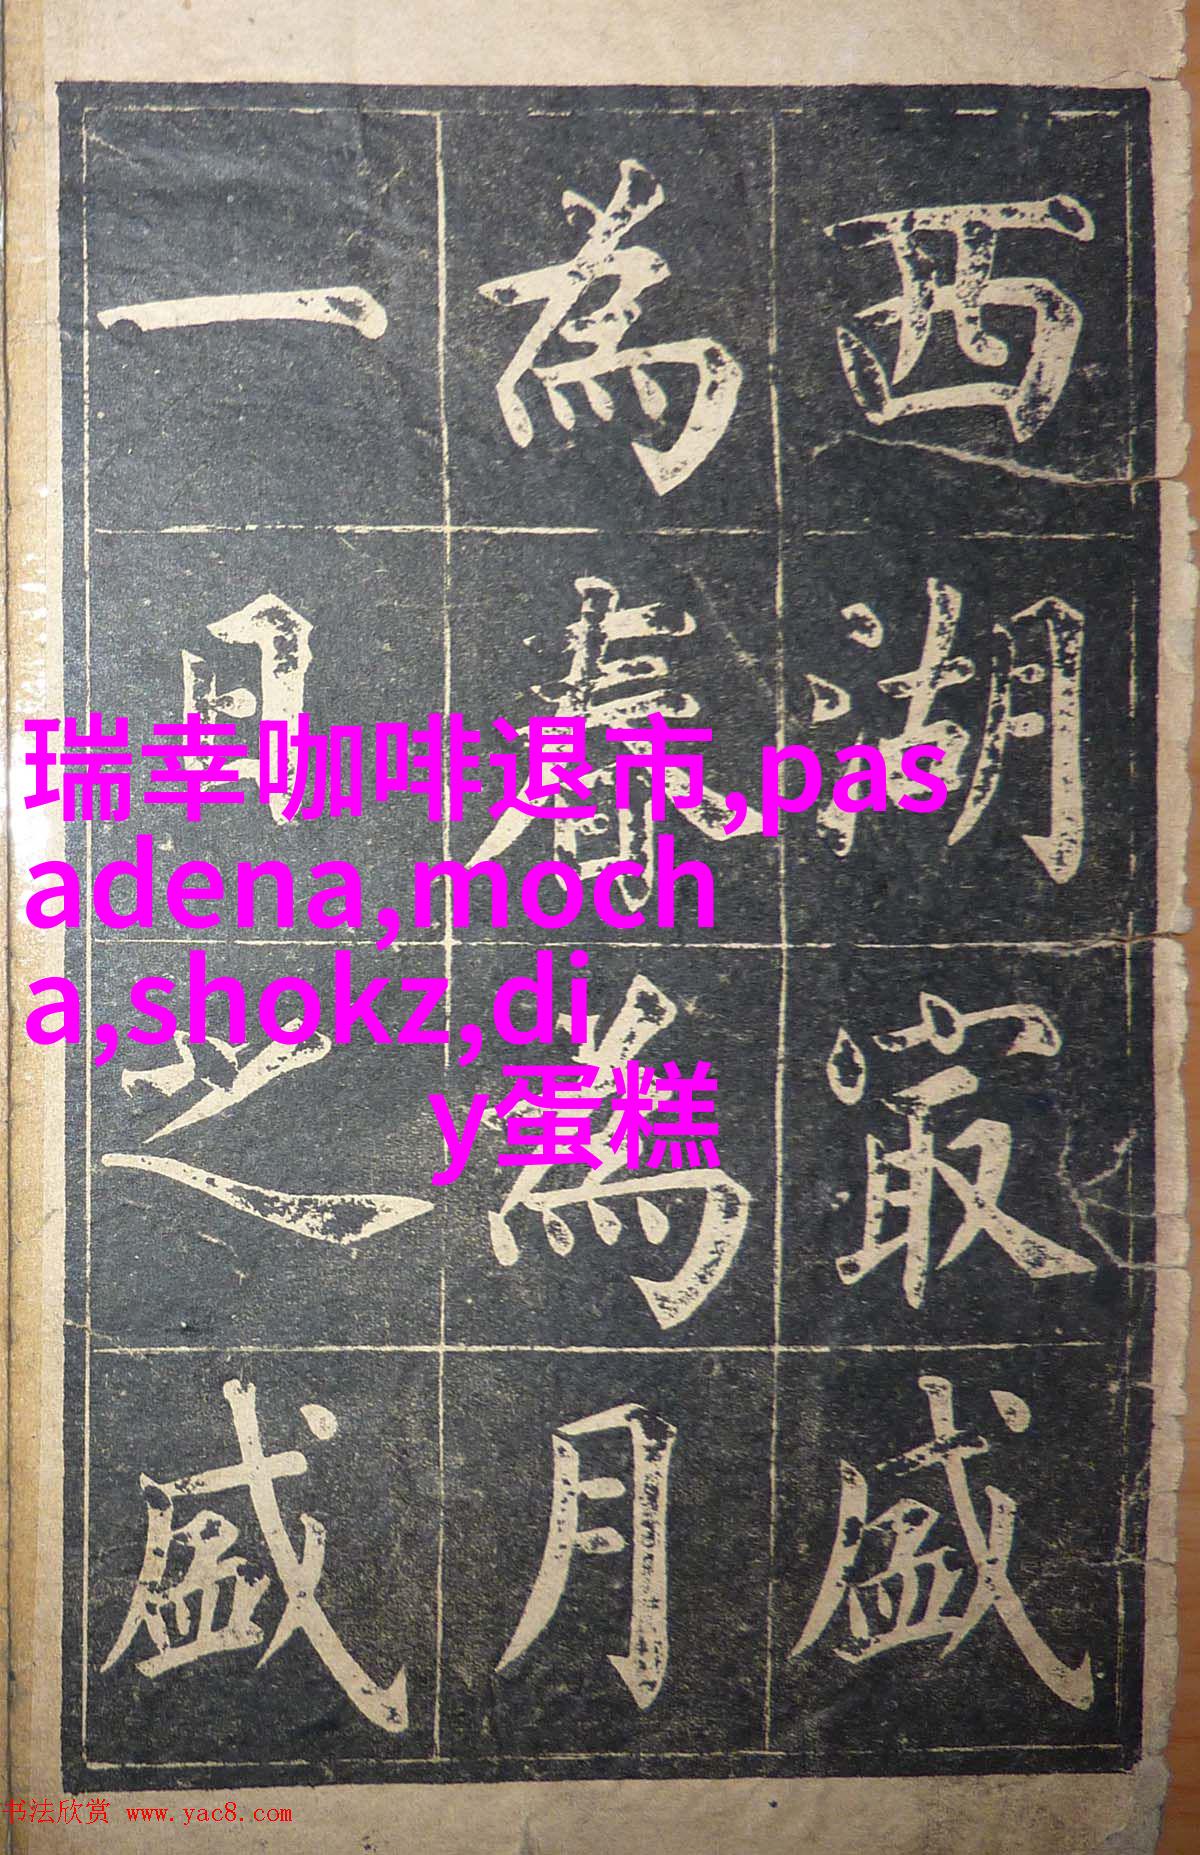 西湖最盛
為春為月
一日之盛
瑞幸咖啡退市,pas
adena,moch
a,shokz,di
y蛋糕
书法欣赏 www.yac8.com